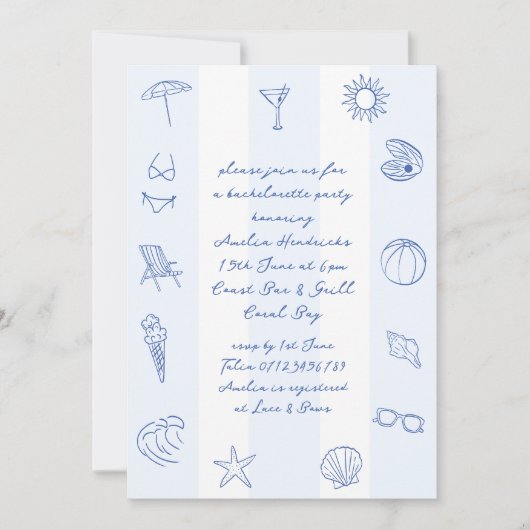 please join us for
a bachelorette party
honoring
Amelia Hendricks
15th June at 6pm
Coast Bar & Grill
Coral Bay
rsvp by 1st June
Talia 07123456789
Amelia is registered
at Lace & Bows